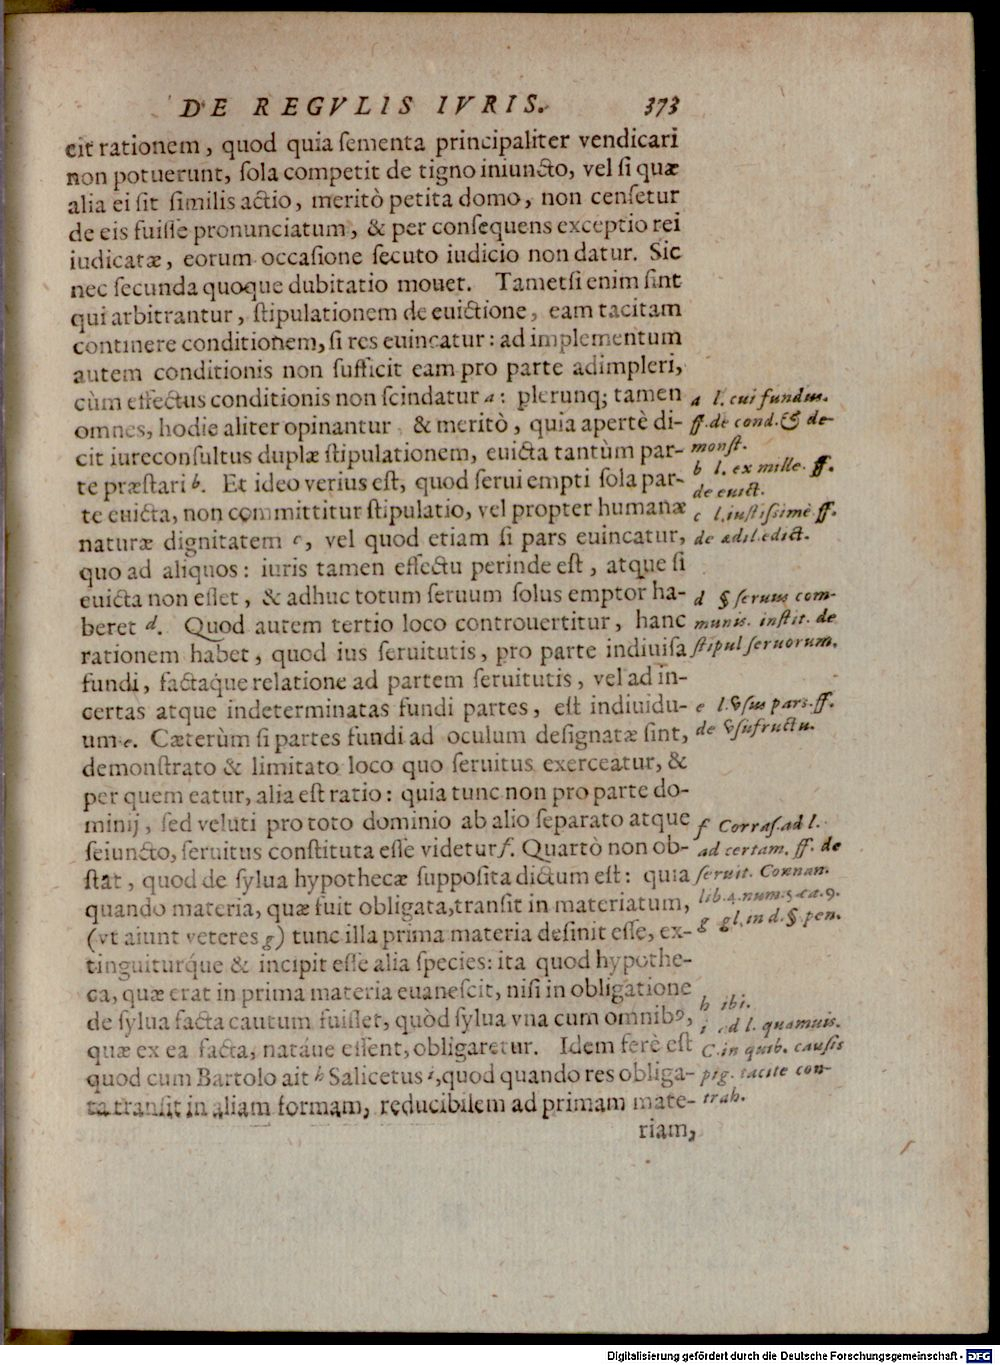 DE REGVLIS IVRIS. 373
cit rationem, quod quia sementa principaliter vendicari
non potuerunt, sola competit de tigno iniuncto, vel si quæ
alia ei sit similis actio, meritò petita domo, non censetur
de eis fuisse pronunciatum, & per consequens exceptio rei
iudicatæ, eorum occasione secuto iudicio non datur. Sic
nec secunda quoque dubitatio mouet. Tametsi enim sint
qui arbitrantur, stipulationem de euictione, eam tacitam
continere conditionem, si res euincatur: ad implementum
autem conditionis non sufficit eam pro parte adimpleri,
cùm effectus conditionis non scindatur a: plerunq; tamen
omnes, hodie aliter opinantur & meritò, quia apertè di-
cit iureconsultus duplæ stipulationem, euicta tantùm par-
te præstari b. Et ideo verius est, quod serui empti sola par-
te euicta, non committitur stipulatio, vel propter humanæ
naturæ dignitatem c, vel quod etiam si pars euincatur,
quo ad aliquos: iuris tamen effectu perinde est, atque si
euicta non esset, & adhuc totum seruum solus emptor ha-
beret d. Quod autem tertio loco controuertitur, hanc
rationem habet, quod ius seruitutis, pro parte indiuisa
fundi, factáque relatione ad partem seruitutis, vel ad in-
certas atque indeterminatas fundi partes, est indiuidu-
um e. Cæterùm si partes fundi ad oculum designatæ sint,
demonstrato & limitato loco quo seruitus exerceatur, &
per quem eatur, alia est ratio: quia tunc non pro parte do-
minij, sed veluti pro toto dominio ab alio separato atque
seiuncto, seruitus constituta esse videtur f. Quartò non ob-
stat, quod de sylua hypothecæ supposita dictum est: quia
quando materia, quæ fuit obligata, transit in materiatum,
(vt aiunt veteres g) tunc illa prima materia desinit esse, ex-
tinguiturque & incipit esse alia species: ita quod hypothe-
ca, quæ erat in prima materia euanescit, nisi in obligatione
de sylua facta cautum fuisset, quòd sylua vna cum omnibꝰ,
quæ ex ea facta, natáue essent, obligaretur. Idem ferè est
quod cum Bartolo ait h Salicetus i, quod quando res obliga-
ta transit in aliam formam, reducibilem ad primam mate-
riam,
a l. cui fundus.
ff. de cond. & de-
monst.
b l. ex mille. ff.
de euict.
c l. iustissimè ff.
de ædil. edict.
d § seruus com-
munis. instit. de
stipul seruorum.
e l. vsus pars. ff.
de vsufructu.
f Corras. ad l.
ad certam. ff. de
seruit. Connan.
lib. 4. num. 5. ca. 9.
g gl. in d. §. pen.
h ibi.
i ad l. quamuis.
C. in quib. causis
pig. tacite con-
trah.
Digitalisierung gefördert durch die Deutsche Forschungsgemeinschaft - DFG